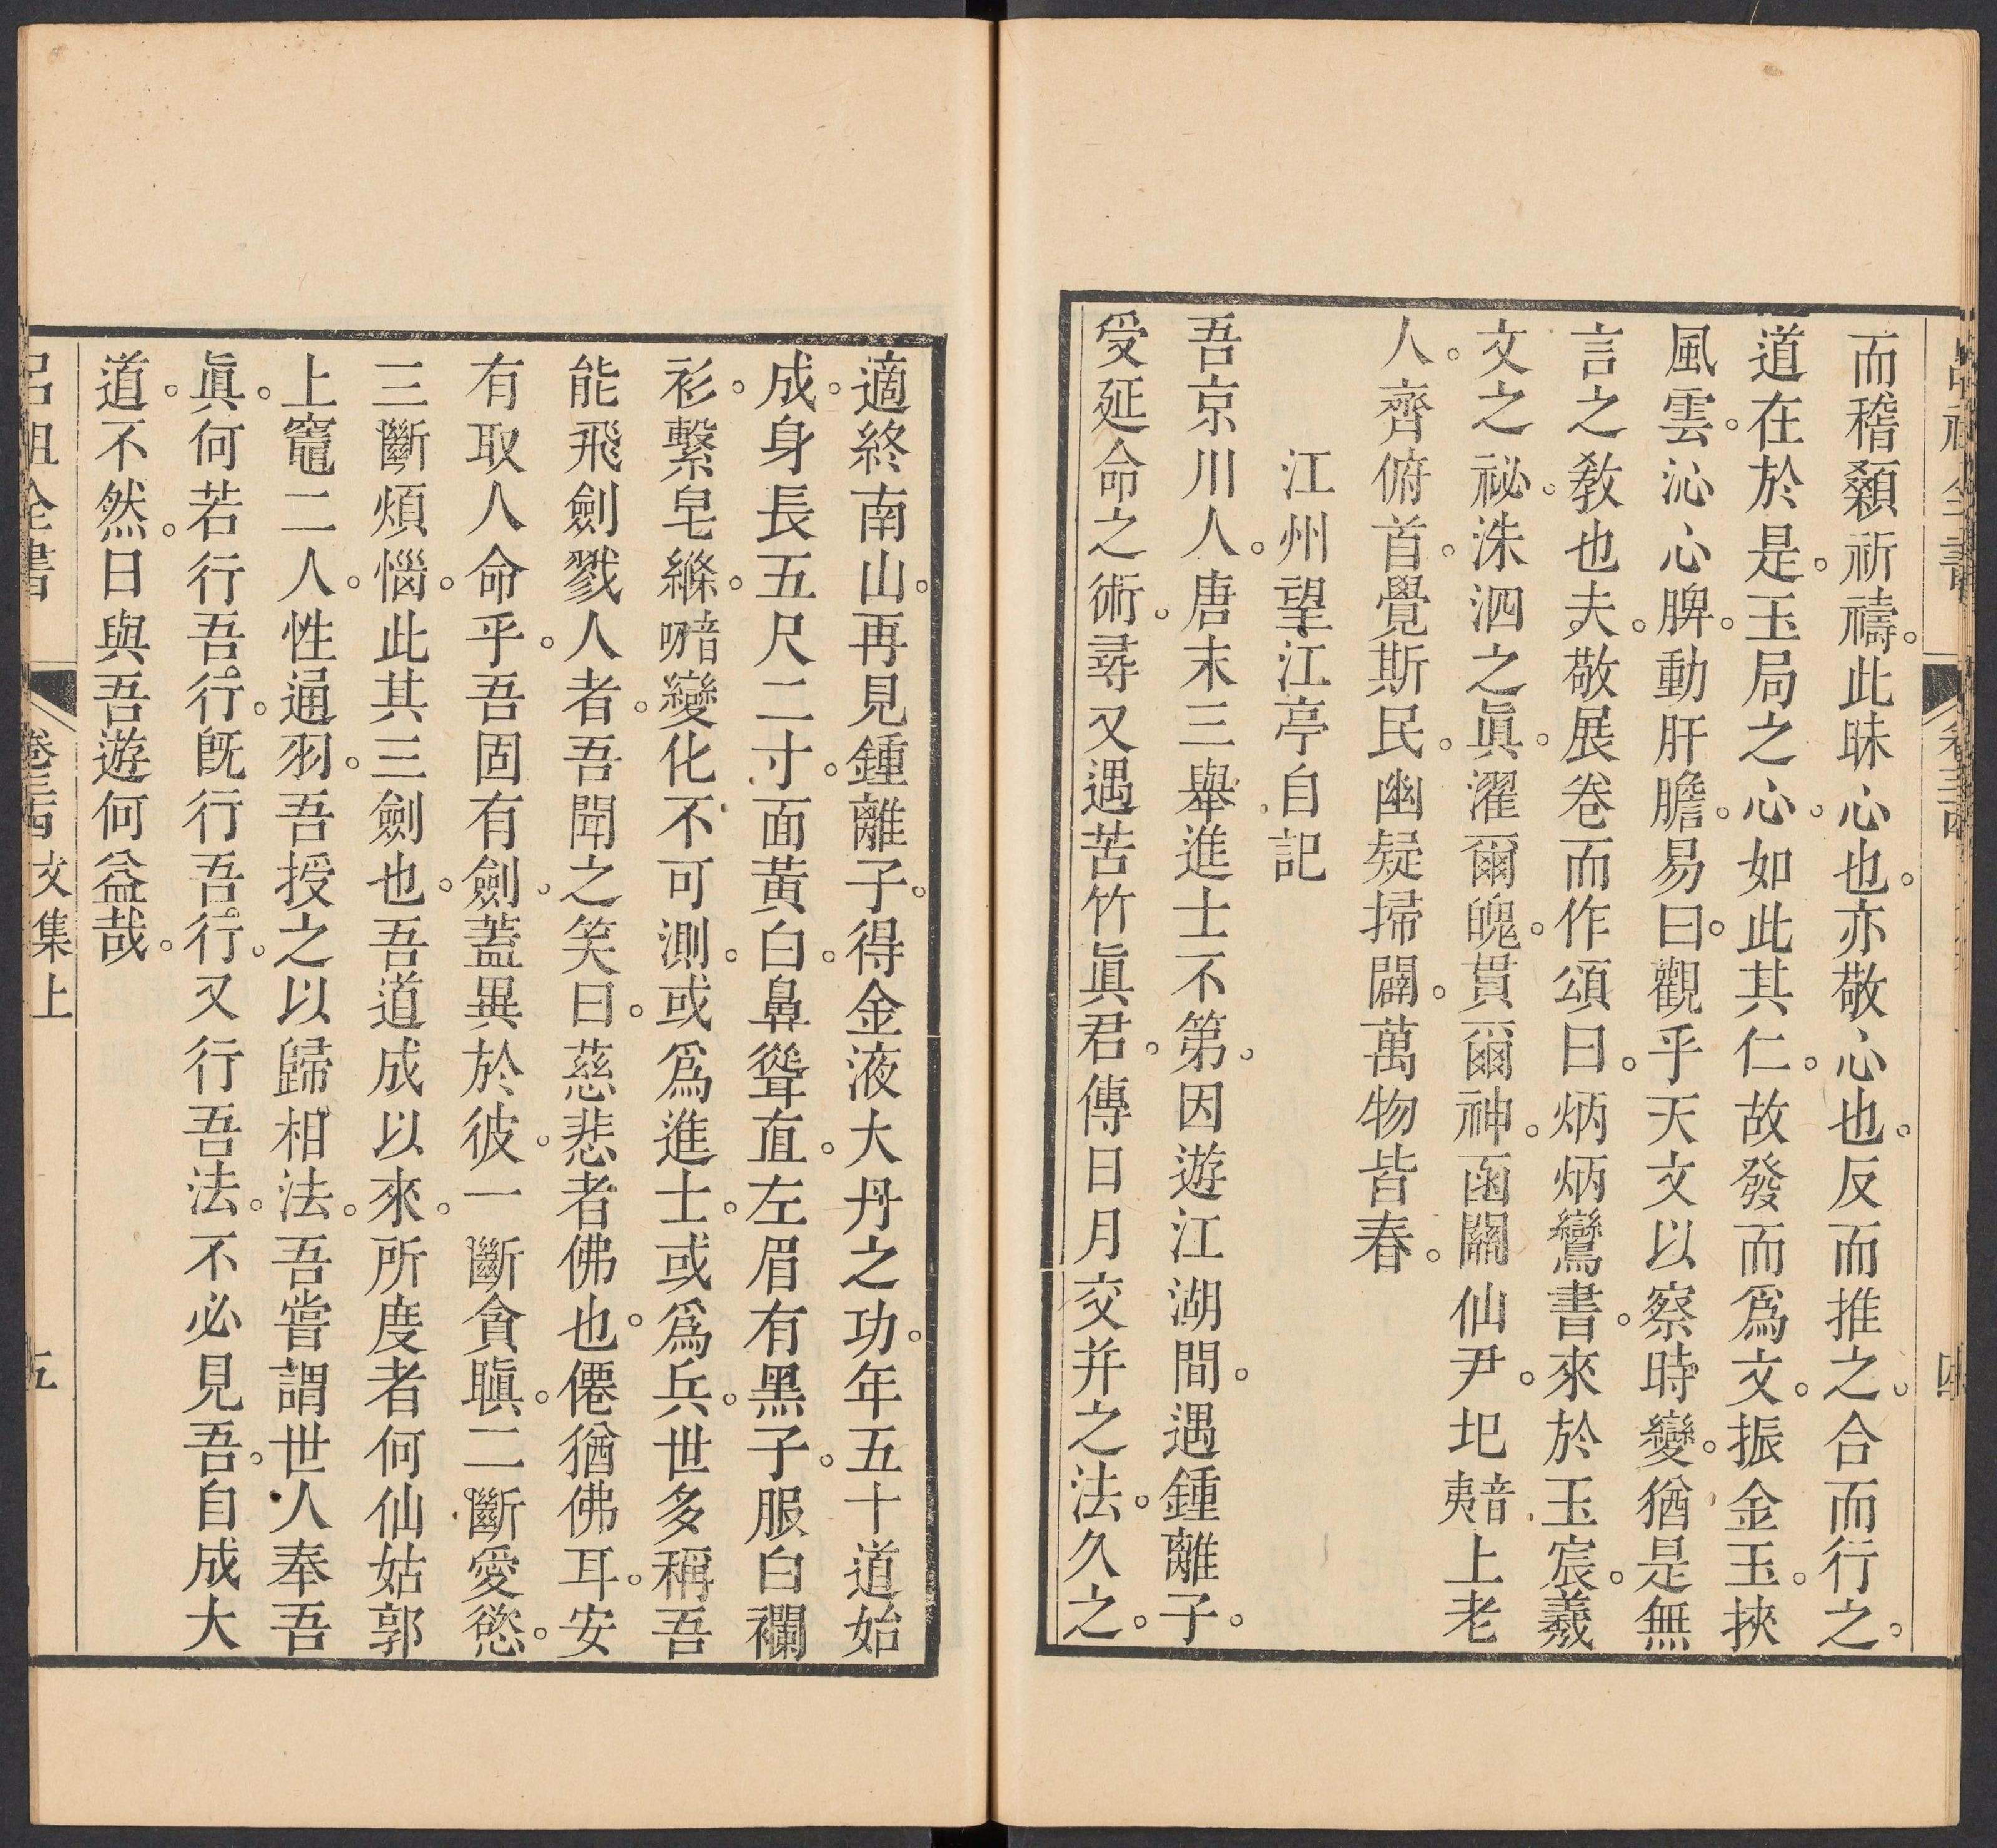 而稽顙祈禱。此昧心也。亦敬心也。反而推之。合而行之。
道在於是。玉局之心。如此其仁。故發而爲文。振金玉。挾
風雲。沁心脾。動肝膽。易曰。觀乎天文以察時變。猶是無
言之教也夫。敬展卷而作頌曰。炳炳鸞書。來於玉宸。羲
文之祕。洙泗之眞。濯爾魄。貫爾神。函關仙尹。圯音夷上老
人。齊俯首。覺斯民。幽疑掃闢。萬物皆春。
江州望江亭自記
吾京川人。唐末三舉進士不第。因遊江湖間。遇鍾離子。
受延命之術。尋又遇苦竹眞君。傳日月交并之法。久之。
適終南山。再見鍾離子。得金液大丹之功。年五十道始
成。身長五尺二寸。面黃白。鼻聳直。左眉有黑子。服白襴
衫。繫皂縧。音叨變化不可測。或爲進士。或爲兵。世多稱吾
能飛劍戮人者。吾聞之笑曰。慈悲者佛也。僊猶佛耳。安
有取人命乎。吾固有劍。蓋異於彼。一斷貪瞋。二斷愛慾。
三斷煩惱。此其三劍也。吾道成以來。所度者何仙姑郭
上竈二人。性通羽。吾授之以歸相法。吾嘗謂世人奉吾
眞。何若行吾行。旣行吾行。又行吾法。不必見吾。自成大
道。不然。日與吾遊何益哉。
呂祖全書
文集上
五